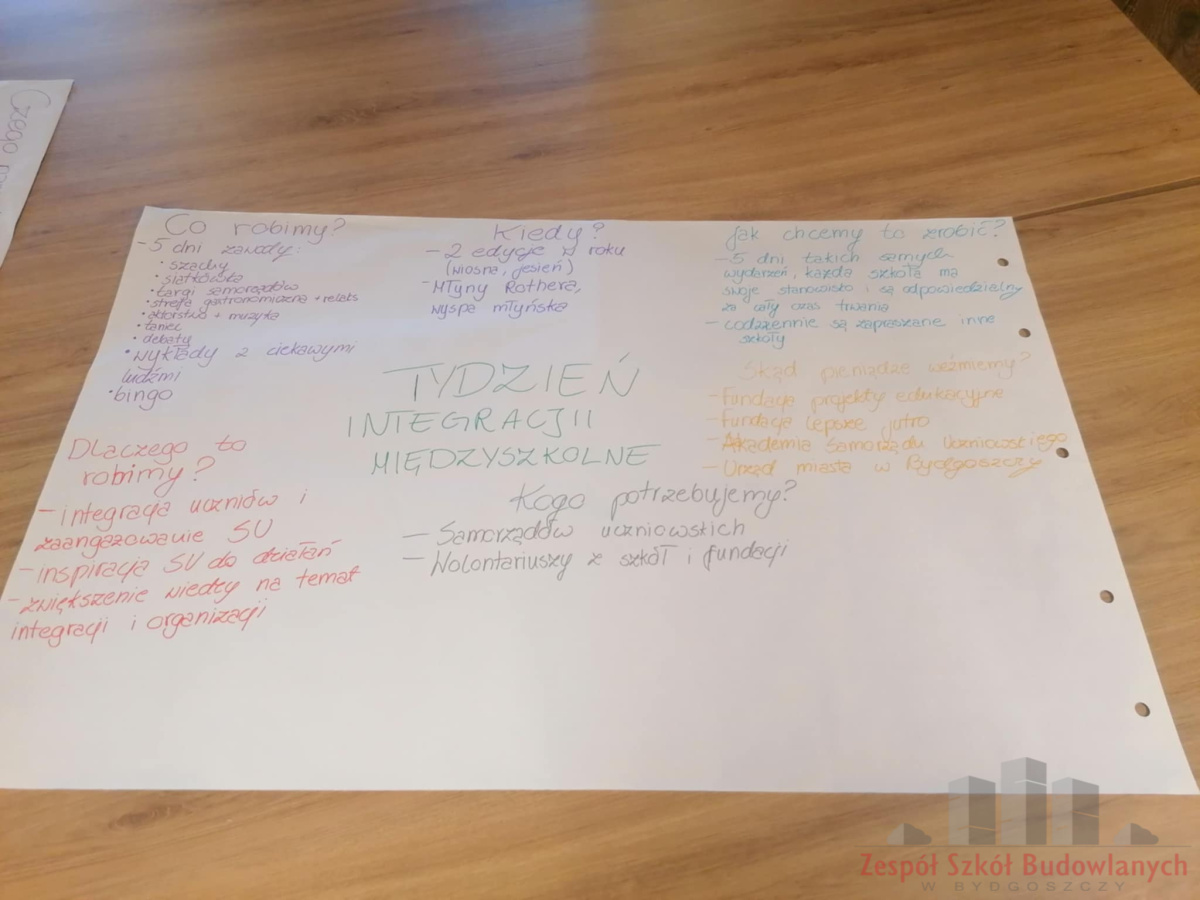 Co robimy?
- 5 dni zawody:
• szachy
• siatkówka
• targi samorządów
• strefa gastronomiczna + relaks
• aktorstwo + muzyka
• taniec
• debaty
• wykłady z ciekawymi
ludźmi
• bingo
Kiedy?
- 2 edycje w roku
(wiosna, jesień)
- Młyny Rothera,
wyspa młyńska
Jak chcemy to zrobić?
- 5 dni takich samych
wydarzeń, każda szkoła ma
swoje stanowisko i są odpowiedzialny
za cały czas trwania
- codziennie są zapraszane inne
szkoły
TYDZIEŃ
INTEGRACJII
MIĘDZYSZKOLNE
Skąd pieniądze weźmiemy?
- Fundacja projekty edukacyjne
- Fundacja lepsze jutro
- Akademia Samorządu Uczniowskiego
- Urząd miasta w Bydgoszczy
Dlaczego to
robimy?
- integracja uczniów i
zaangażowanie SU
- inspiracja SU do działań
- zwiększenie wiedzy na temat
integracji i organizacji
Kogo potrzebujemy?
- Samorządów uczniowskich
- Wolontariuszy z szkół i fundacji
Czego
Zespół Szkół Budowlanych
W BYDGOSZCZY